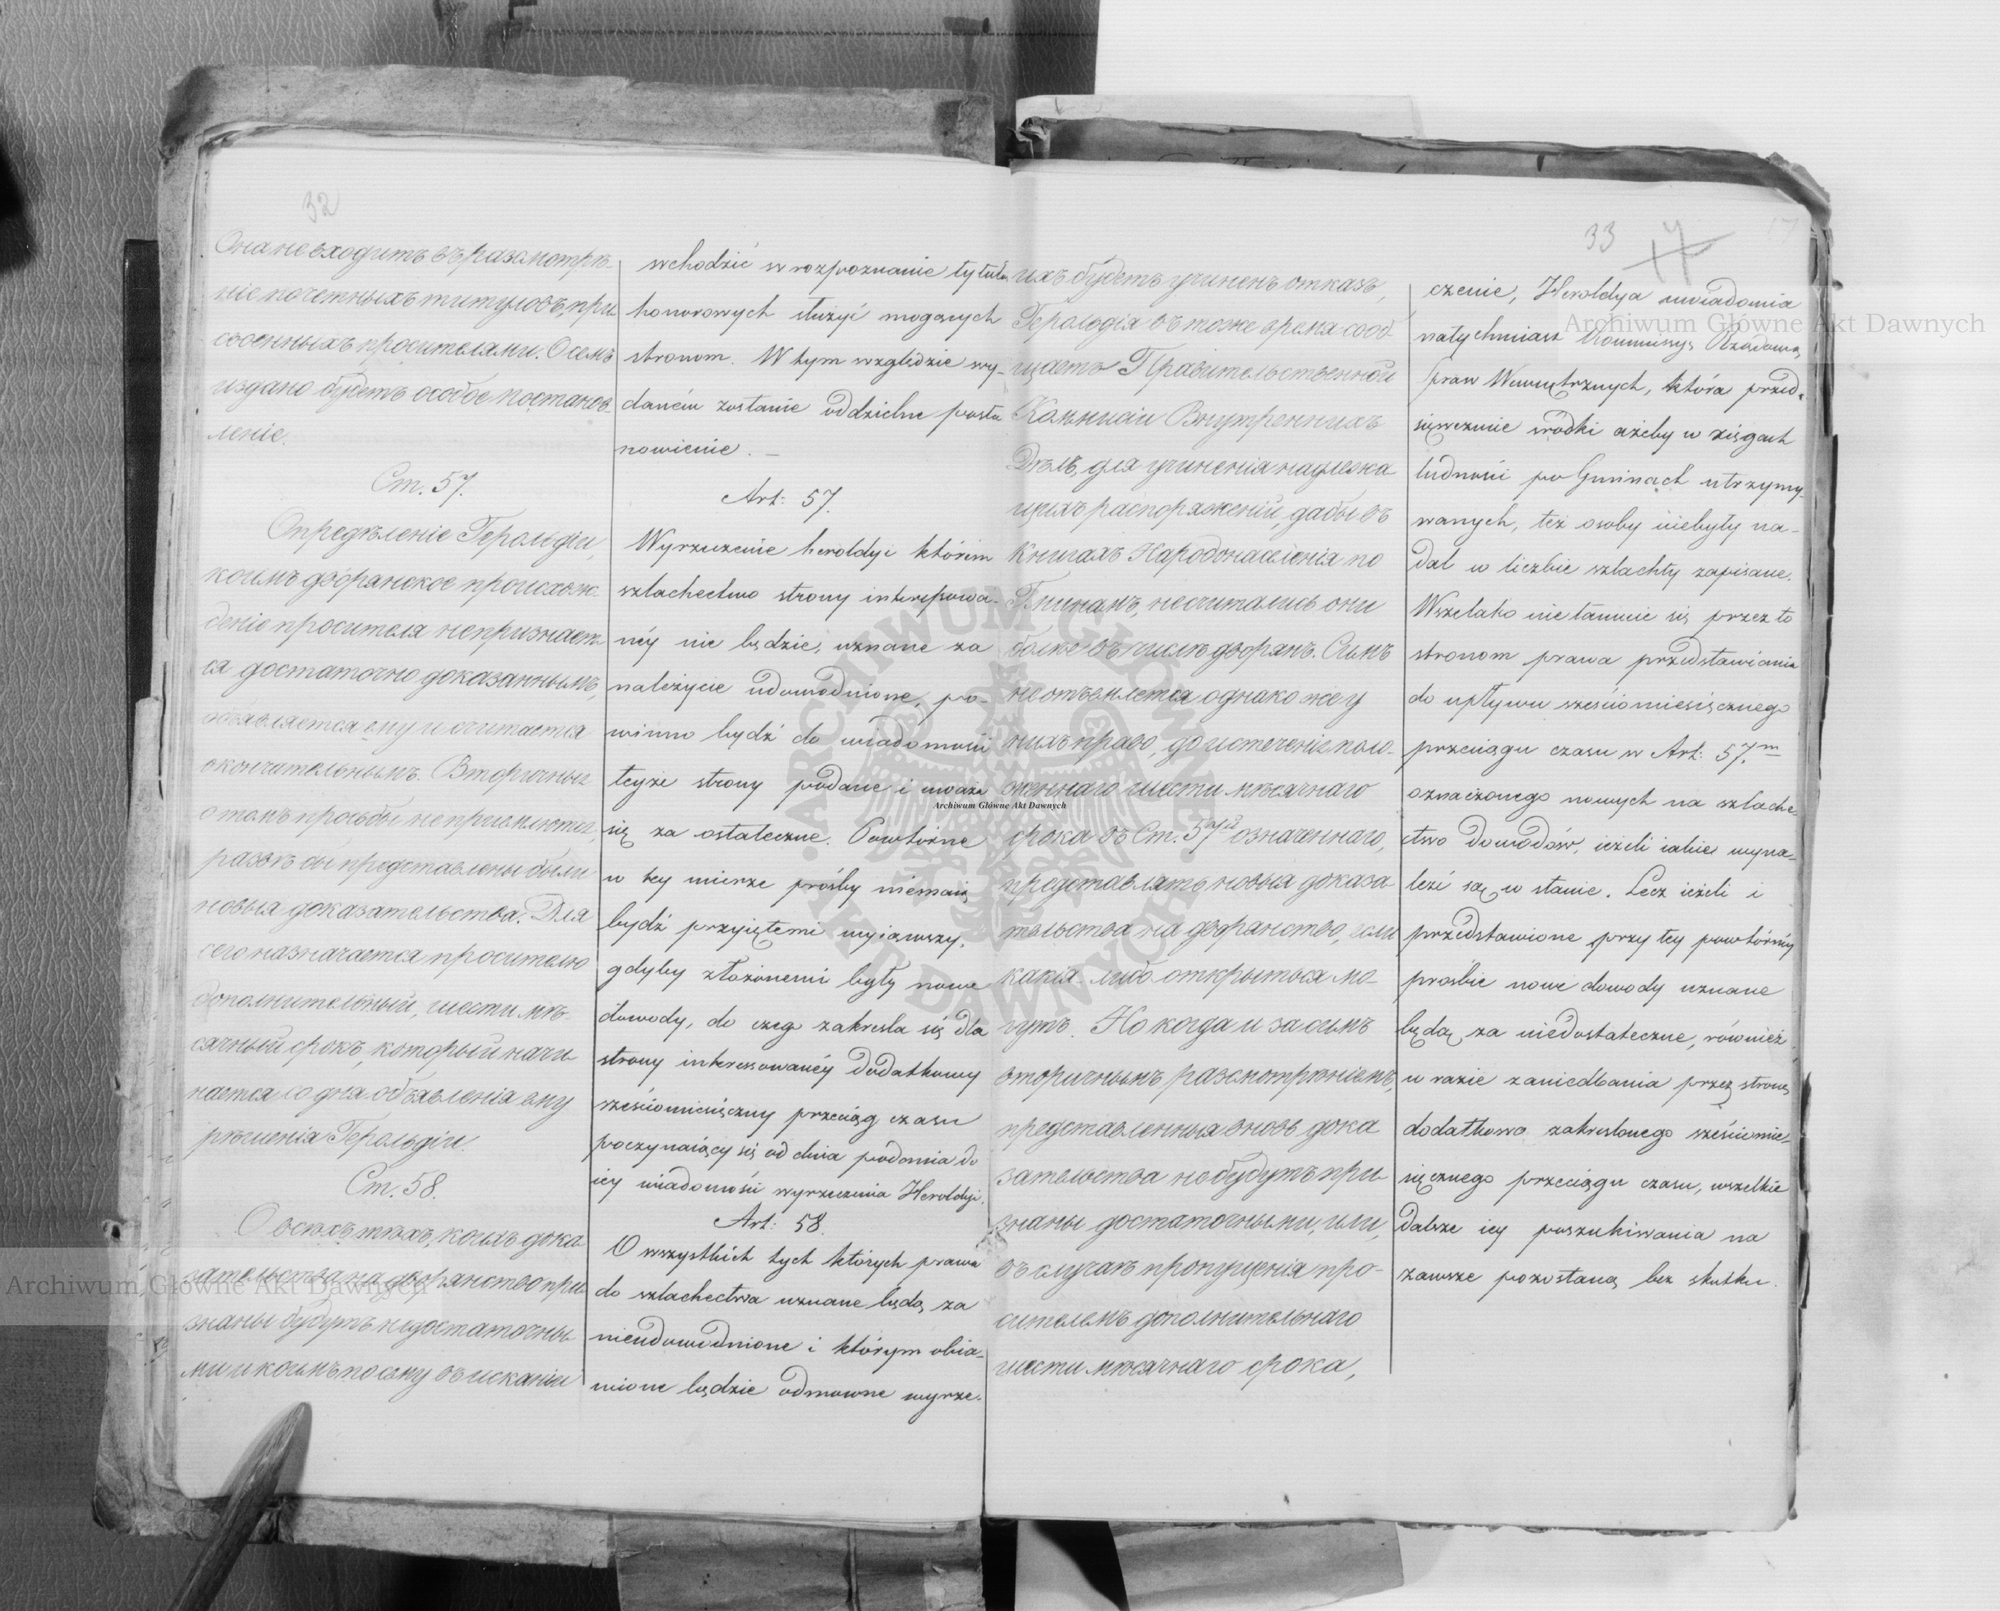 32
Она не входитъ въ разсмотрѣ-
ніе почетныхъ титуловъ, при
своенныхъ просителями. О семъ
издано будетъ особое постанов-
леніе.
Ст. 57.
Опредѣленіе Герольдіи,
коимъ дворянское происхож-
деніе просителя непризнает-
ся достаточно доказаннымъ,
объявляется ему и считается
окончательнымъ. Вторичныя
о томъ просьбы не пріемлются,
развѣ бы представлены были
новыя доказательства. Для
сего назначается просителю
дополнительный, шести мѣ-
сячный срокъ, который начи
нается со дня объявленія ему
рѣшенія Герольдіи.
Ст. 58.
О всѣхъ тѣхъ, коихъ дока
зательства на дворянство при
знаны будутъ недостаточны
ми и коимъ по сему въ исканіи
wchodzić w rozpoznanie tytułów
honorowych służyć mogących
stronom. W tym względzie wy-
danem zostanie oddzielne posta
nowienie. —
Art: 57.
Wyrzeczenie heroldyi którém
szlachectwo strony interesowa-
néy nie będzie, uznane za
należycie udowodnione, po-
winno bydź do wiadomości
teyże strony podane i uważa
się za ostateczne. Powtórne
w tey mierze prośby niemaią
bydź przyiętemi wyiąwszy,
gdyby złożonemi były nowe
dowody, do czego zakreśla się dla
strony interessowanéy dodatkowy
sześciomiesięczny przeciąg czasu
poczynaiący się od dnia podania do
iey wiadomości wyrzeczenia Heroldyi.
Art: 58.
O wszystkich tych których prawa
do szlachectwa uznane będą za
nieudowodnione i którym obia-
wione będzie odmowne wyrze-
33 17
17
ихъ будетъ учиненъ отказъ,
Герольдія въ тоже время сооб-
щаетъ Правительственной
Коммисіи Внутреннихъ
Дѣлъ, для учиненія надлежа
щихъ распоряженій, дабы въ
книгахъ Народонаселенія по
Гминамъ, несчитались они
болѣе въ числѣ дворянъ. Симъ
не отъемлется однако же у
нихъ право, до истеченія поло-
женнаго шести мѣсячнаго
срока въ Ст. 57й означеннаго,
представлять новыя доказа
тельства на дворянство, если
какія либо открыться мо-
гутъ. Но когда и за симъ
вторичнымъ разсмотрѣніемъ,
представленныя вновь дока
зательства не будутъ при
знаны достаточными, или,
въ случаѣ пропущенія про-
сителемъ дополнительнаго
шести мѣсячнаго срока,
czenie, Heroldya uwiadomia
natychmiast Kommissyę Rządową
Spraw Wewnętrznych, która przed-
sięweźmie środki ażeby w xięgach
ludności po Gminach utrzymy-
wanych, też osoby niebyły na-
dal w liczbie szlachty zapisane.
Wszelako nie tamuie się przez to
stronom prawa przedstawiania
do upływu sześciomiesięcznego
przeciągu czasu w Art: 57.m
oznaczonego nowych na szlache-
ctwo dowodów, ieżeli iakie wyna-
leźć są w stanie. Lecz ieżeli i
przedstawione przy tey powtórnéy
prośbie nowe dowody uznane
będą za niedostateczne, również
w razie zaniedbania przez stronę
dodatkowo zakreślonego sześciomie-
sięcznego przeciągu czasu, wszelkie
dalsze iey poszukiwania na
zawsze pozostaną bez skutku.
Archiwum Główne Akt Dawnych
Archiwum Główne Akt Dawnych
Archiwum Główne Akt Dawnych
ARCHIWUM GŁÓWNE AKT DAWNYCH